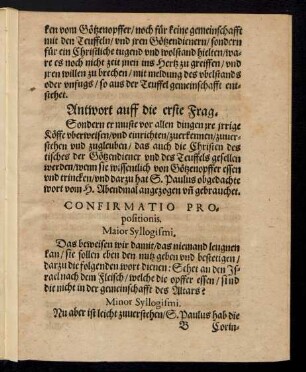 ken vom Götzenopffer/noch für keine gemeinschafft
mit den Teuffeln/vnd jren Götzendienern/sondern
für ein Christliche tugend vnd wolstand hielten/wa-
re es noch nicht zeit jnen ins Hertz zu greiffen/vnd
jren willen zu brechen/mit meldung des vbelstands
oder vnfugs/so aus der Teuffel gemeinschafft ent-
stehet.
Antwort auff die erste Frag.
Sondern er muste vor allen dingen jre jrrige
Köffe vberweisen/vnd einrichten/zuerkennen/zuuer-
stehen vnd zugleuben/das auch die Christen des
tisches der Götzendiener vnd des Teuffels gesellen
werden/wenn sie wissentlich von Götzenopffer essen
vnd trincken/vnd darzu hat S. Paulus obgedachte
wort vom H. Abendmal angezogen vñ gebrauchet.
CONFIRMATIO PRO-
positionis.
Maior Syllogismi.
Das beweisen wir damit/das niemand leugnen
kan/sie sollen eben den nutz geben vnd bestetigen/
darzu die folgenden wort dienen: Sehet an den Js-
rael nach dem Fleisch/welche die opffer essen/sind
die nicht in der gemeinschafft des Altars?
Minor Syllogismi.
Nu aber ist leicht zuuerstehen/S. Paulus hab die
B Corin-